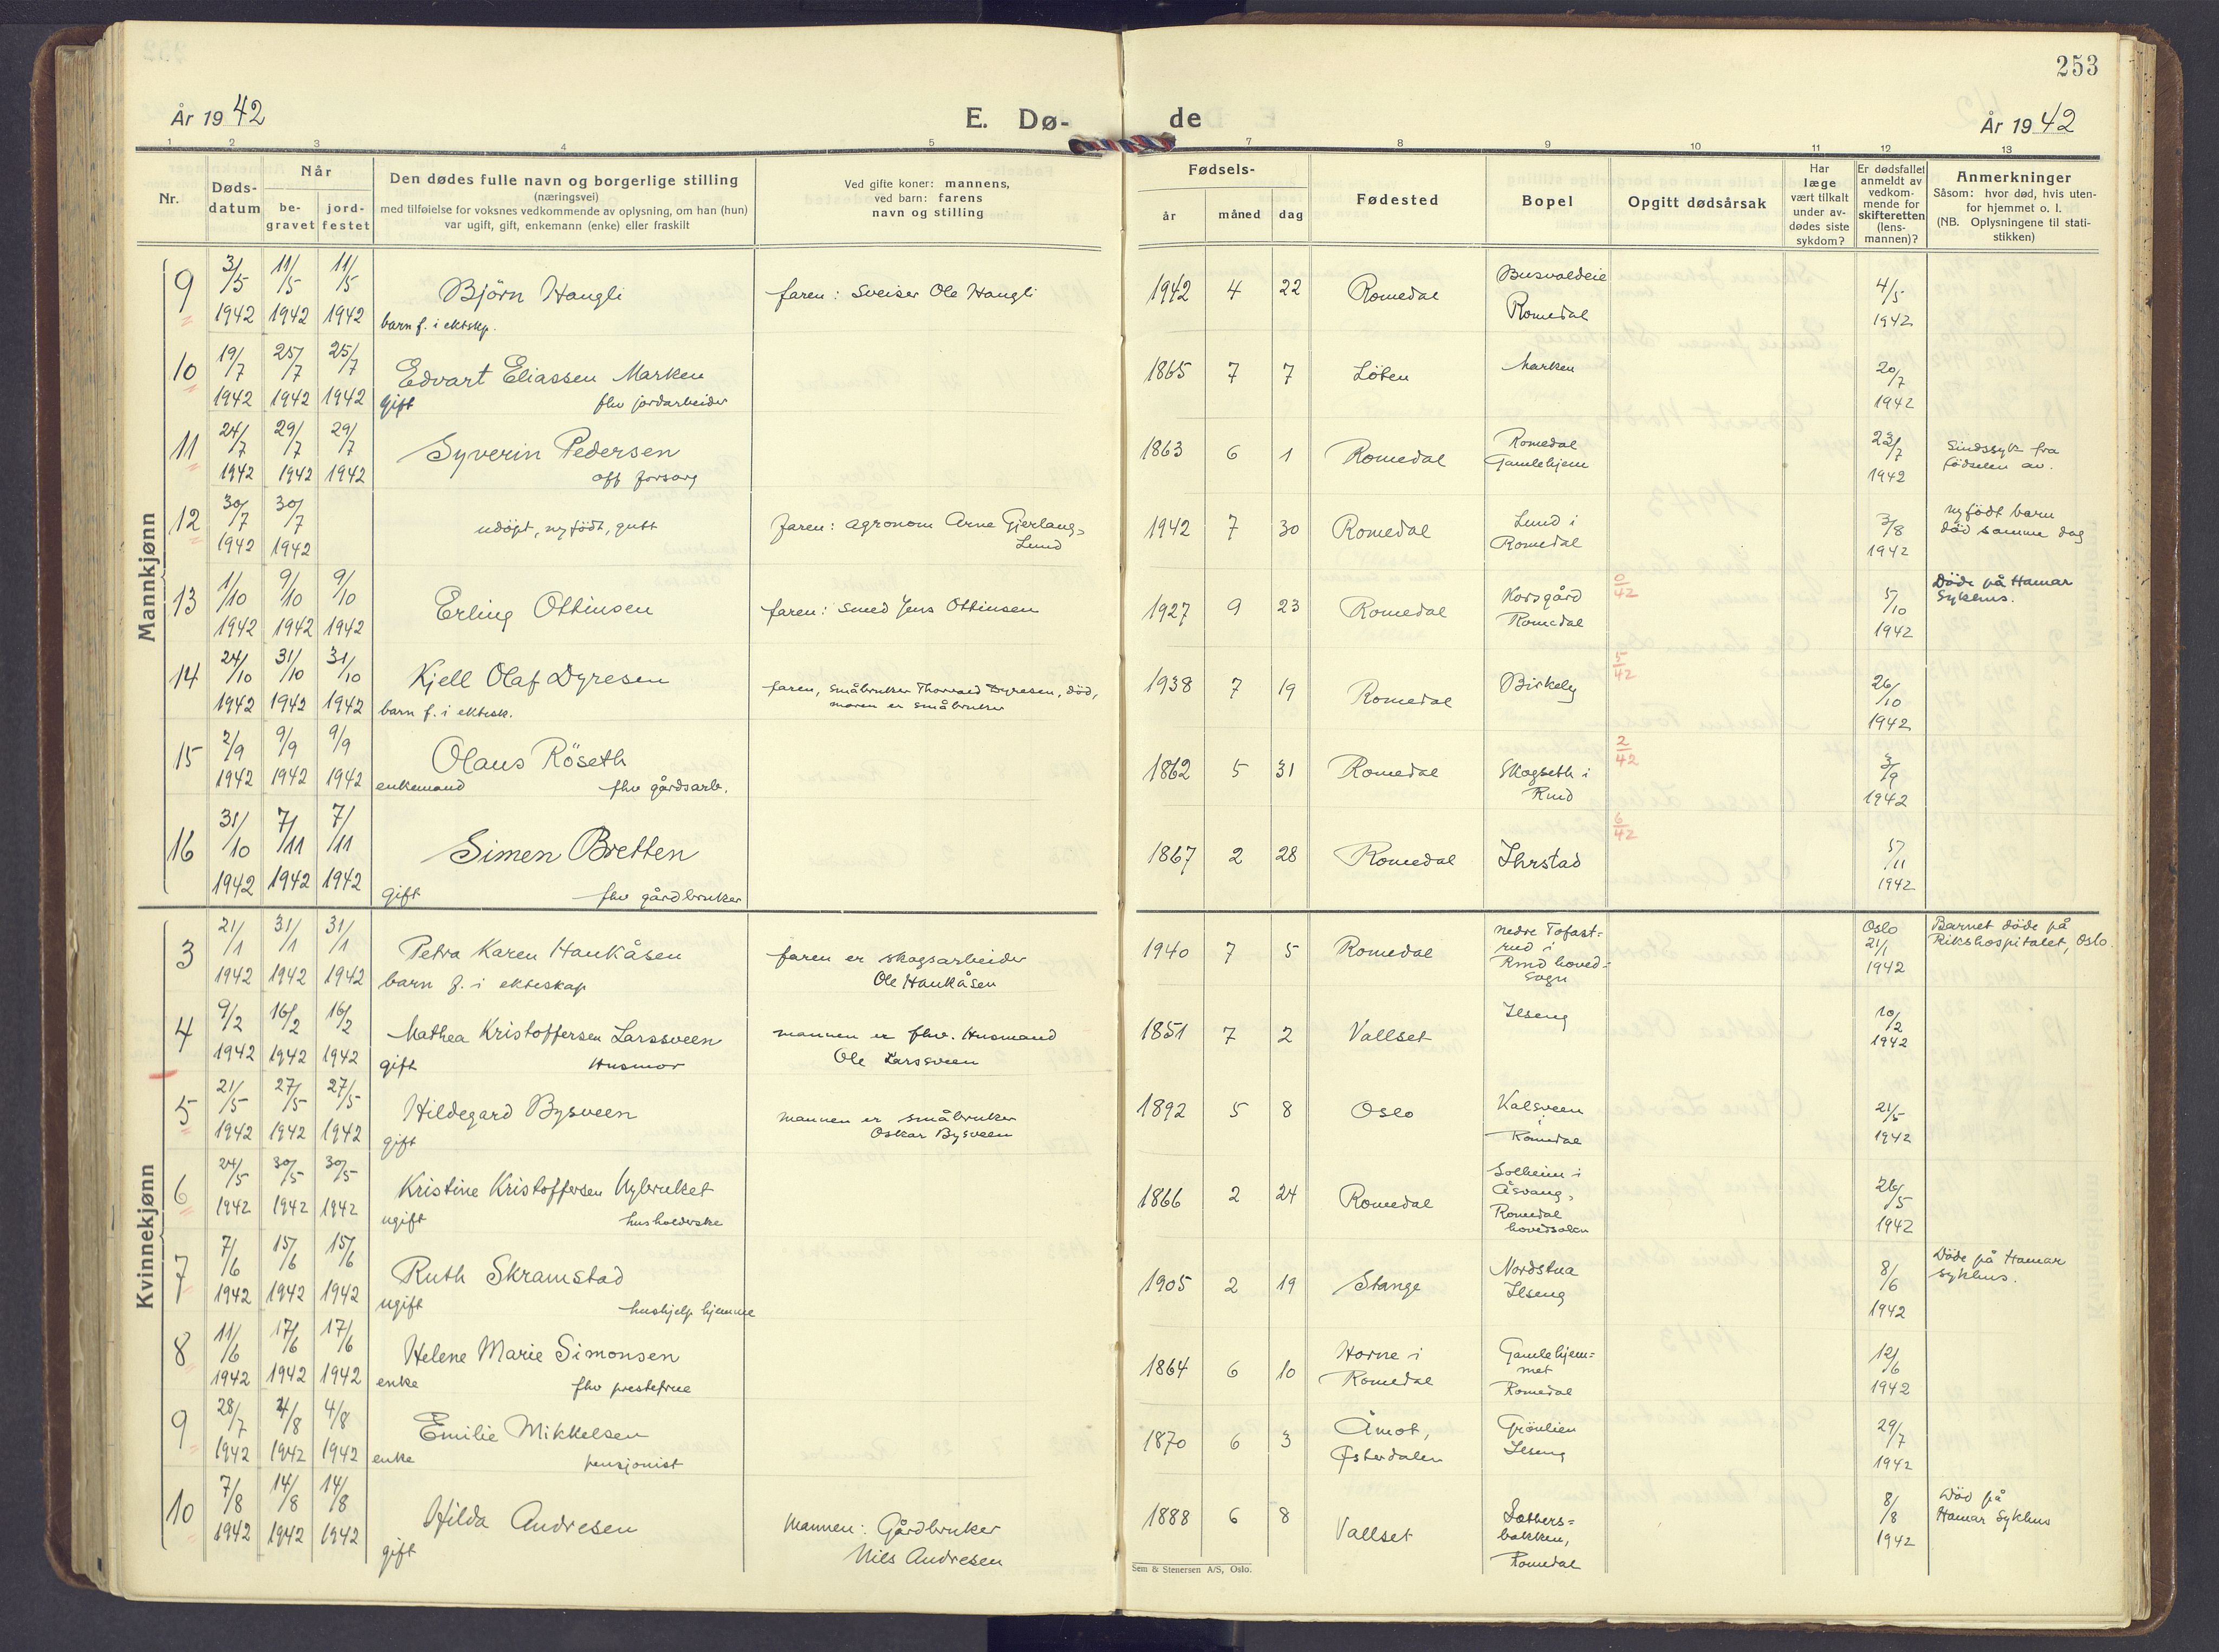 253
År 1942
E. Dø-
de
År 1942
1 2 3 4 5 7 8 9 10 11 12 13
Nr.
Døds-
datum
Når
be-
gravet
jord-
festet
Den dødes fulle navn og borgerlige stilling
(næringsvei)
med tilføielse for voksnes vedkommende av oplysning, om han (hun)
var ugift, gift, enkemann (enke) eller fraskilt
Ved gifte koner: mannens,
ved barn: farens
navn og stilling
Fødsels-
år måned dag
Fødested
Bopel
Opgitt dødsårsak
Har
læge
vært tilkalt
under av-
dødes siste
sykdom?
Er dødsfallet
anmeldt av
vedkom-
mende for
skifteretten
(lens-
mannen)?
Anmerkninger
Såsom: hvor død, hvis uten-
for hjemmet o. l.
(NB. Oplysningene til stati-
stikken)
Mannkjønn
9 3/5 1942 11/5 1942 11/5 1942 Björn Haugli
barn f. i ektskp.
faren: Sveiser Ole Haugli
1942 4 22 Romedal
Busvoldeie
Romedal
4/5 1942
10 19/7 1942 25/7 1942 25/7 1942 Edvart Eliassen Marken
gift fhv jordarbeider
1865 7 7 Löten
Marken
20/7 1942
11 24/7 1942 29/7 1942 29/7 1942 Syverin Pedersen
off forsorg
1863 6 1 Romedal
Romedal
Gamlehjem
23/7 1942
Sindssyk fra
födselen av.
12 30/7 1942 30/7 1942
udöpt, nyfödt, gutt
faren: agronom Arne Gjerlaug-
Lund
1942 7 30 Romedal
Lund i
Romedal
3/8 1942
nyfödt barn
död samme dag
13 1/10 1942 9/10 1942 9/10 1942 Erling Ottinsen
faren: Smed Jens Ottinsen
1927 9 23 Romedal
Korsgård
Romedal
0/42
5/10 1942
Döde på Hamar
Sykhus.
14 24/10 1942 31/10 1942 31/10 1942 Kjell Olaf Dyresen
barn f. i ektesk.
faren, småbruker Thorvald Dyresen, död,
moren er småbruker
1938 7 19 Romedal
Birkely
5/42
26/10 1942
15 2/9 1942 9/9 1942 9/9 1942 Olaus Röseth
enkemand fhv gårdsarb.
1862 5 31 Romedal
Skogseth i
Rmd
2/42
3/9 1942
16 31/10 1942 7/11 1942 7/11 1942 Simen Bretten
gift fhv gårdbruker
1867 2 28 Romedal
Ihrstad
6/42
5/11 1942
Kvinnekjønn
3 21/1 1942 31/1 1942 31/1 1942 Petra Karen Haukåsen
barn f. i ekteskap
faren er skogsarbeider
Ole Haukåsen
1940 7 5 Romedal
nedre Tofast-
rud i
Rmd hoved-
sogn
Oslo
21/1 1942
Barnet döde på
Rikshospitalet, Oslo.
4 9/2 1942 16/2 1942 16/2 1942 Mathea Kristoffersen Larssveen
gift Husmor
mannen er fhv. Husmand
Ole Larssveen
1851 7 2 Vallset
Ilseng
10/2 1942
5 21/5 1942 27/5 1942 27/5 1942 Hildegard Bysveen
gift
mannen er småbruker
Oskar Bysveen
1892 5 8 Oslo
Kalsveen
i
Romedal
21/5 1942
6 24/5 1942 30/5 1942 30/5 1942 Kristine Kristoffersen Nybruket
ugift husholderske
1866 2 24 Romedal
Solheim i
Åsvang,
Romedal
hovedsokn
26/5 1942
7 7/6 1942 15/6 1942 15/6 1942 Ruth Skramstad
ugift hushjelp hjemme
1905 2 19 Stange
Nordstua
Ilseng
8/6 1942
Döde på Hamar
sykhus.
8 11/6 1942 17/6 1942 17/6 1942 Helene Marie Simonsen
enke fhv prestefrue
1864 6 10
Horne i
Romedal
Gamlehjem-
met
Romedal
12/6 1942
9 28/7 1942 4/8 1942 4/8 1942 Emilie Mikkelsen
enke pensjonist
1870 6 3
Åmot,
Østerdalen
Grönlien
Ilseng
29/7 1942
10 7/8 1942 14/8 1942 14/8 1942 Hilda Andresen
gift
Mannen: Gårdbruker
Nils Andresen
1888 6 8 Vallset
bakken,
Romedal
8/8 1942
Död på
Hamar Sykhus
Sem & Stenersen A/S, Oslo.